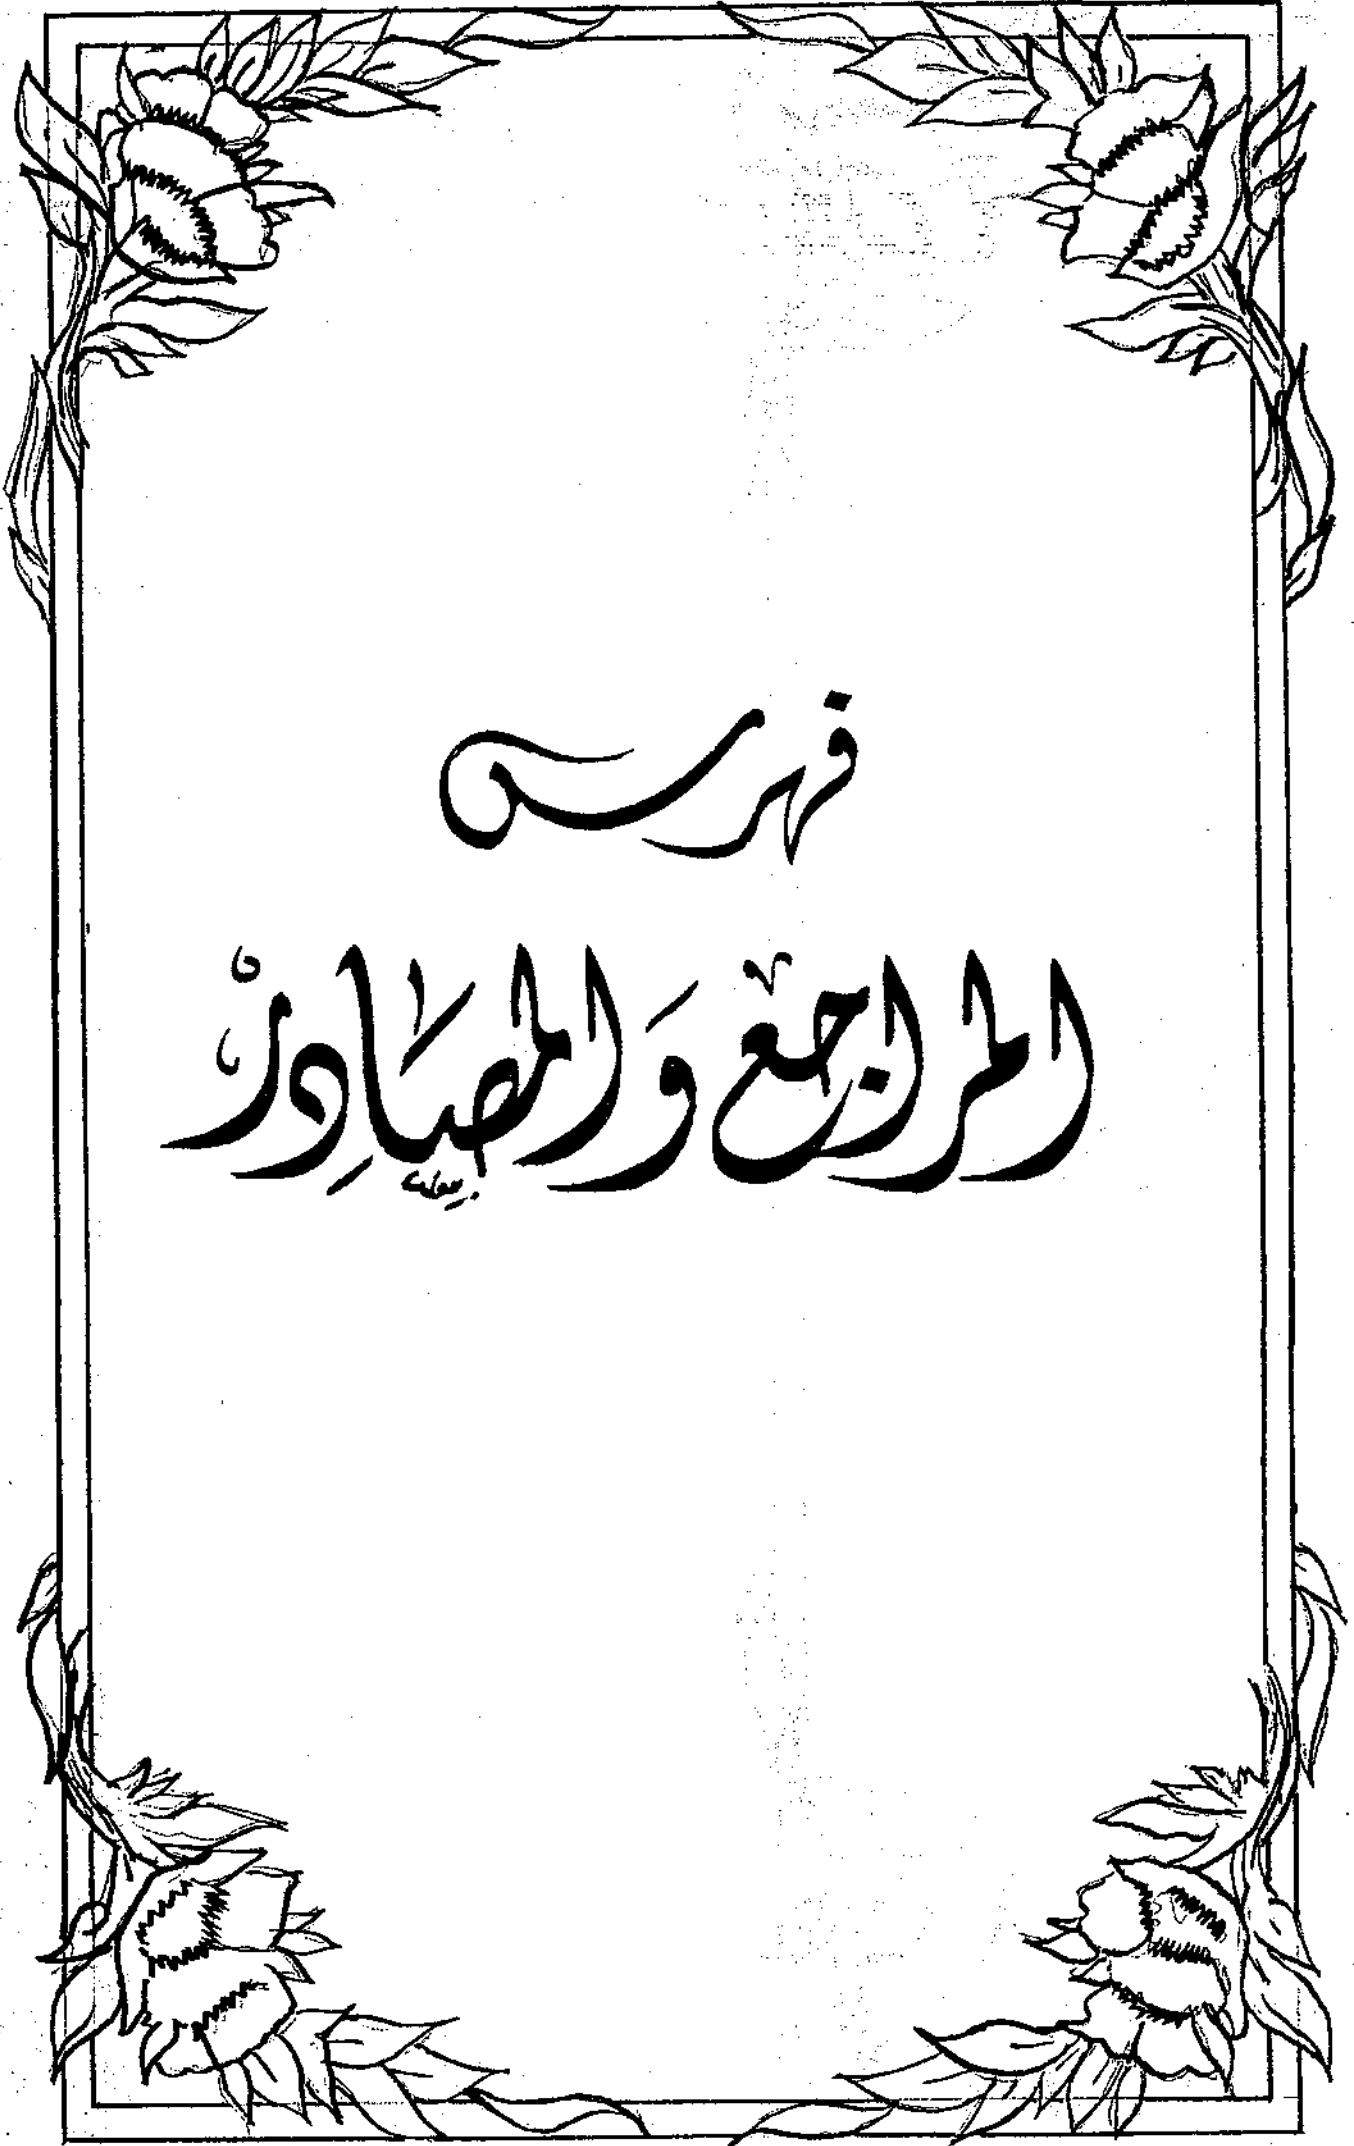 فهرس
المراجع وَالمصَادِر